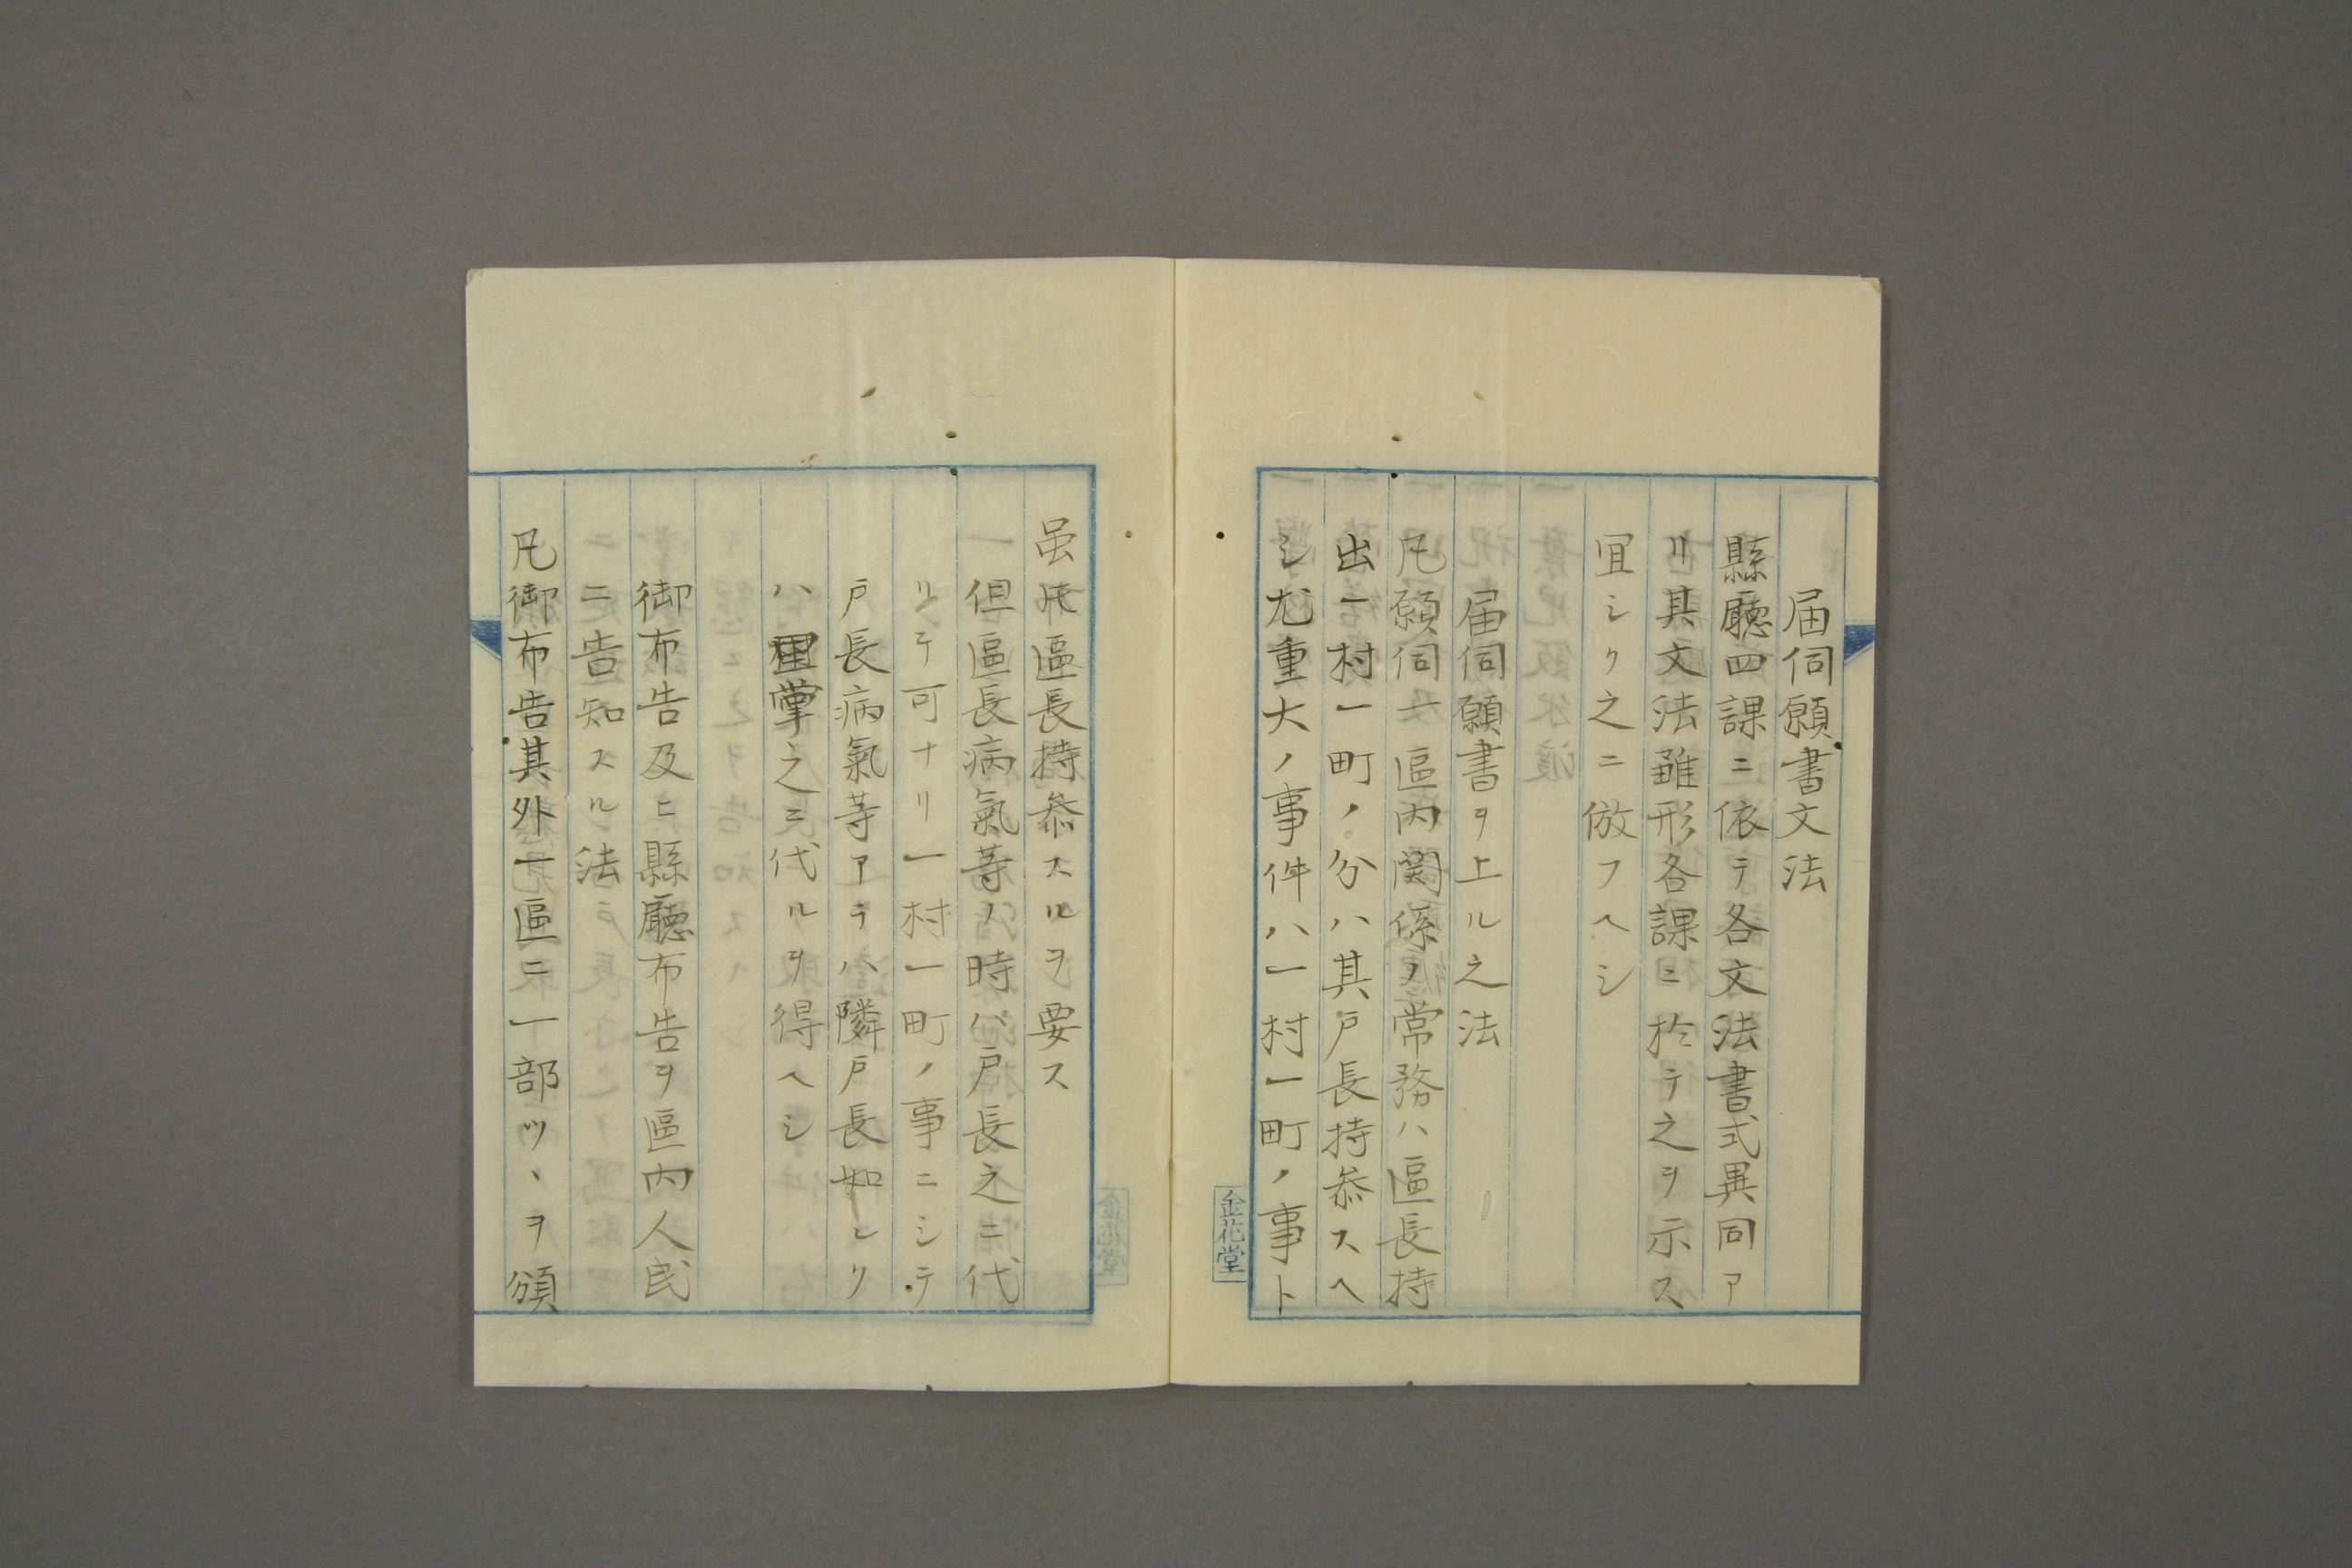 届伺願書文法
縣廳四課ニ依テ各文法書式異同ア
リ其文法雛形各課ニ於テ之ヲ示ス
宜シク之ニ倣フヘシ
届伺願書ヲ上ル之法
凡願伺一區内関係ノ常務ハ區長持
出一村一町ノ分ハ其戸長持叅スヘ
シ尤重大ノ事件ハ一村一町ノ事ト
金花堂
虽𪜈區長持叅スルヲ要ス
但區長病氣等ノ時ハ戸長之ニ代
リテ可ナリ一村一町ノ事ニシテ
戸長病氣等アラハ隣戸長如シク
ハ里掌之ニ代ルヲ得ヘシ
御布告及ヒ縣廳布告ヲ區内人民
ニ告知スル法
凡御布告其外一區ニ一部ツヽヲ頒